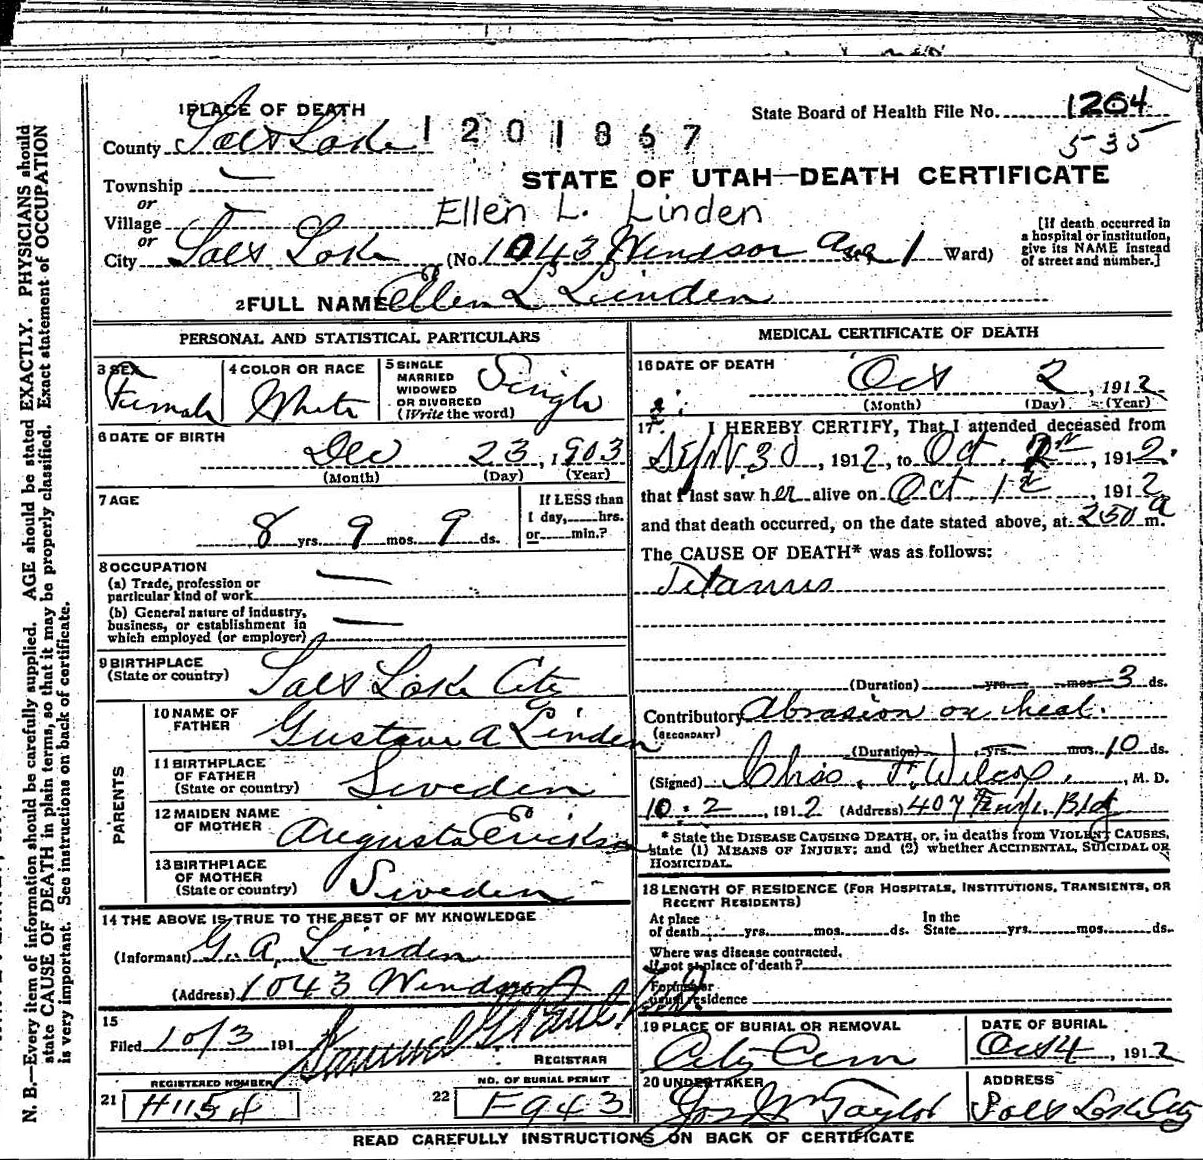 N. B.—Every item of information should be carefully supplied. AGE should be stated EXACTLY. PHYSICIANS should
state CAUSE OF DEATH in plain terms, so that it may be properly classified. Exact statement of OCCUPATION
is very important. See instructions on back of certificate.
1 PLACE OF DEATH
State Board of Health File No. 1264
535
County Salt Lake
1201867
Township
STATE OF UTAH—DEATH CERTIFICATE
or
Village
Ellen L. Linden
or
City Salt Lake (No. 1043 Windsor Ave St., 1 Ward)
[If death occurred in
a hospital or institution,
give its NAME instead
of street and number.]
2 FULL NAME Ellen L Linden
PERSONAL AND STATISTICAL PARTICULARS
3 SEX Female
4 COLOR OR RACE White
5 SINGLE
MARRIED
WIDOWED
OR DIVORCED
(Write the word) Single
6 DATE OF BIRTH
Dec 23, 1903
(Month) (Day) (Year)
7 AGE
8 yrs. 9 mos. 9 ds.
If LESS than
1 day,.....hrs.
or.....min.?
8 OCCUPATION
(a) Trade, profession or
particular kind of work
(b) General nature of industry,
business, or establishment in
which employed (or employer)
9 BIRTHPLACE
(State or country) Salt Lake City
PARENTS
10 NAME OF
FATHER Gustave A Linden
11 BIRTHPLACE
OF FATHER
(State or country) Sweden
12 MAIDEN NAME
OF MOTHER Augusta Erickson
13 BIRTHPLACE
OF MOTHER
(State or country) Sweden
14 THE ABOVE IS TRUE TO THE BEST OF MY KNOWLEDGE
(Informant) G. A. Linden
(Address) 1043 Windsor
15
Filed 10/3 191
Samuel G Paul
REGISTRAR
REGISTERED NUMBER
21 H1154
NO. OF BURIAL PERMIT
22 F943
MEDICAL CERTIFICATE OF DEATH
16 DATE OF DEATH
Oct 2, 1912
(Month) (Day) (Year)
17 I HEREBY CERTIFY, That I attended deceased from
Sept 30, 1912, to Oct. 2nd, 1912.
that I last saw her alive on Oct. 1st, 1912
and that death occurred, on the date stated above, at 250 a m.
The CAUSE OF DEATH* was as follows:
Tetanus
(Duration) yrs. mos. 3 ds.
Contributory Abrasion on heal.
(SECONDARY)
(Duration) yrs. mos. 10 ds.
(Signed) Chas. F. Wilcox, M. D.
10-2, 1912 (Address) 407 Bldg
* State the DISEASE CAUSING DEATH, or, in deaths from VIOLENT CAUSES,
state (1) MEANS OF INJURY; and (2) whether ACCIDENTAL, SUICIDAL OR
HOMICIDAL.
18 LENGTH OF RESIDENCE (FOR HOSPITALS, INSTITUTIONS, TRANSIENTS, OR
RECENT RESIDENTS)
At place
of death yrs. mos. ds.
In the
State yrs. mos. ds.
Where was disease contracted,
if not at place of death?
Former or
usual residence
19 PLACE OF BURIAL OR REMOVAL
City Cem
DATE OF BURIAL
Oct 4, 1912
20 UNDERTAKER
Jos Wm Taylor
ADDRESS
Salt Lake City
READ CAREFULLY INSTRUCTIONS ON BACK OF CERTIFICATE